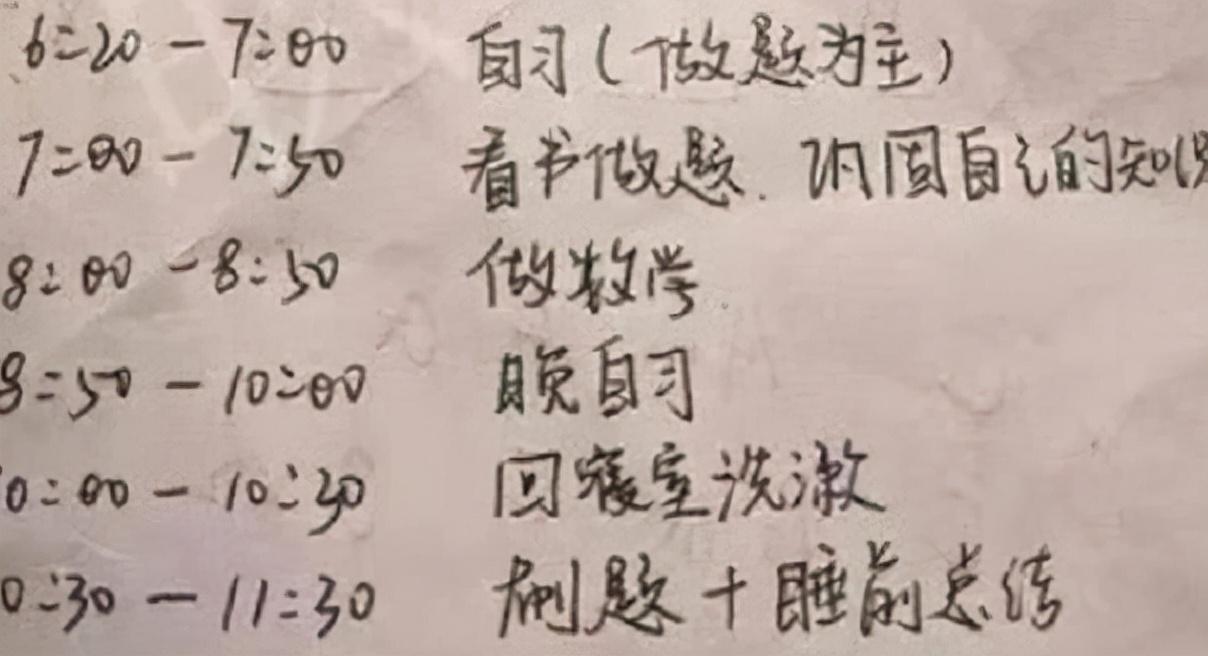 6:20 - 7:00 自习(做题为主)
7:00 - 7:50 看书做题. 巩固自己的知识
8:00 - 8:50 做数学.
8:50 - 10:00 晚自习
0:00 - 10:30 回寝室洗漱
0:30 - 11:30 刷题+睡前总结